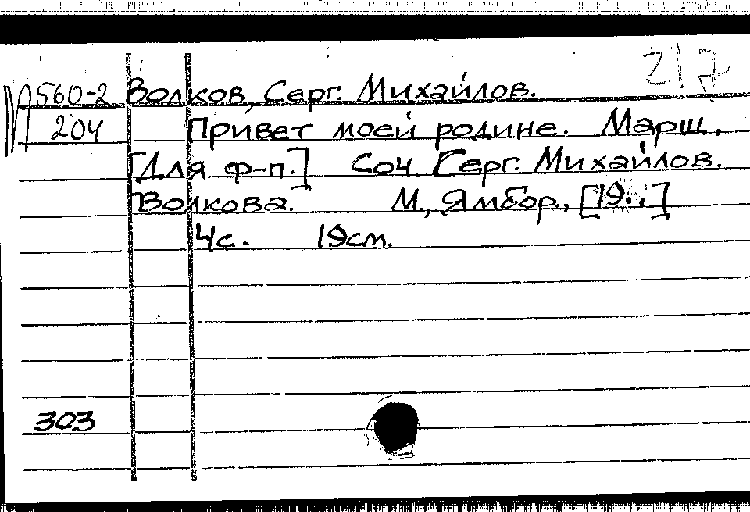 217
М560-2 Волков, Серг. Михайлов.
204 Привет моей родине. Марш.
[Для ф-п.] Соч. Серг. Михайлов.
Волкова. М., Ямбор, [19..]
4с. 19см.
303